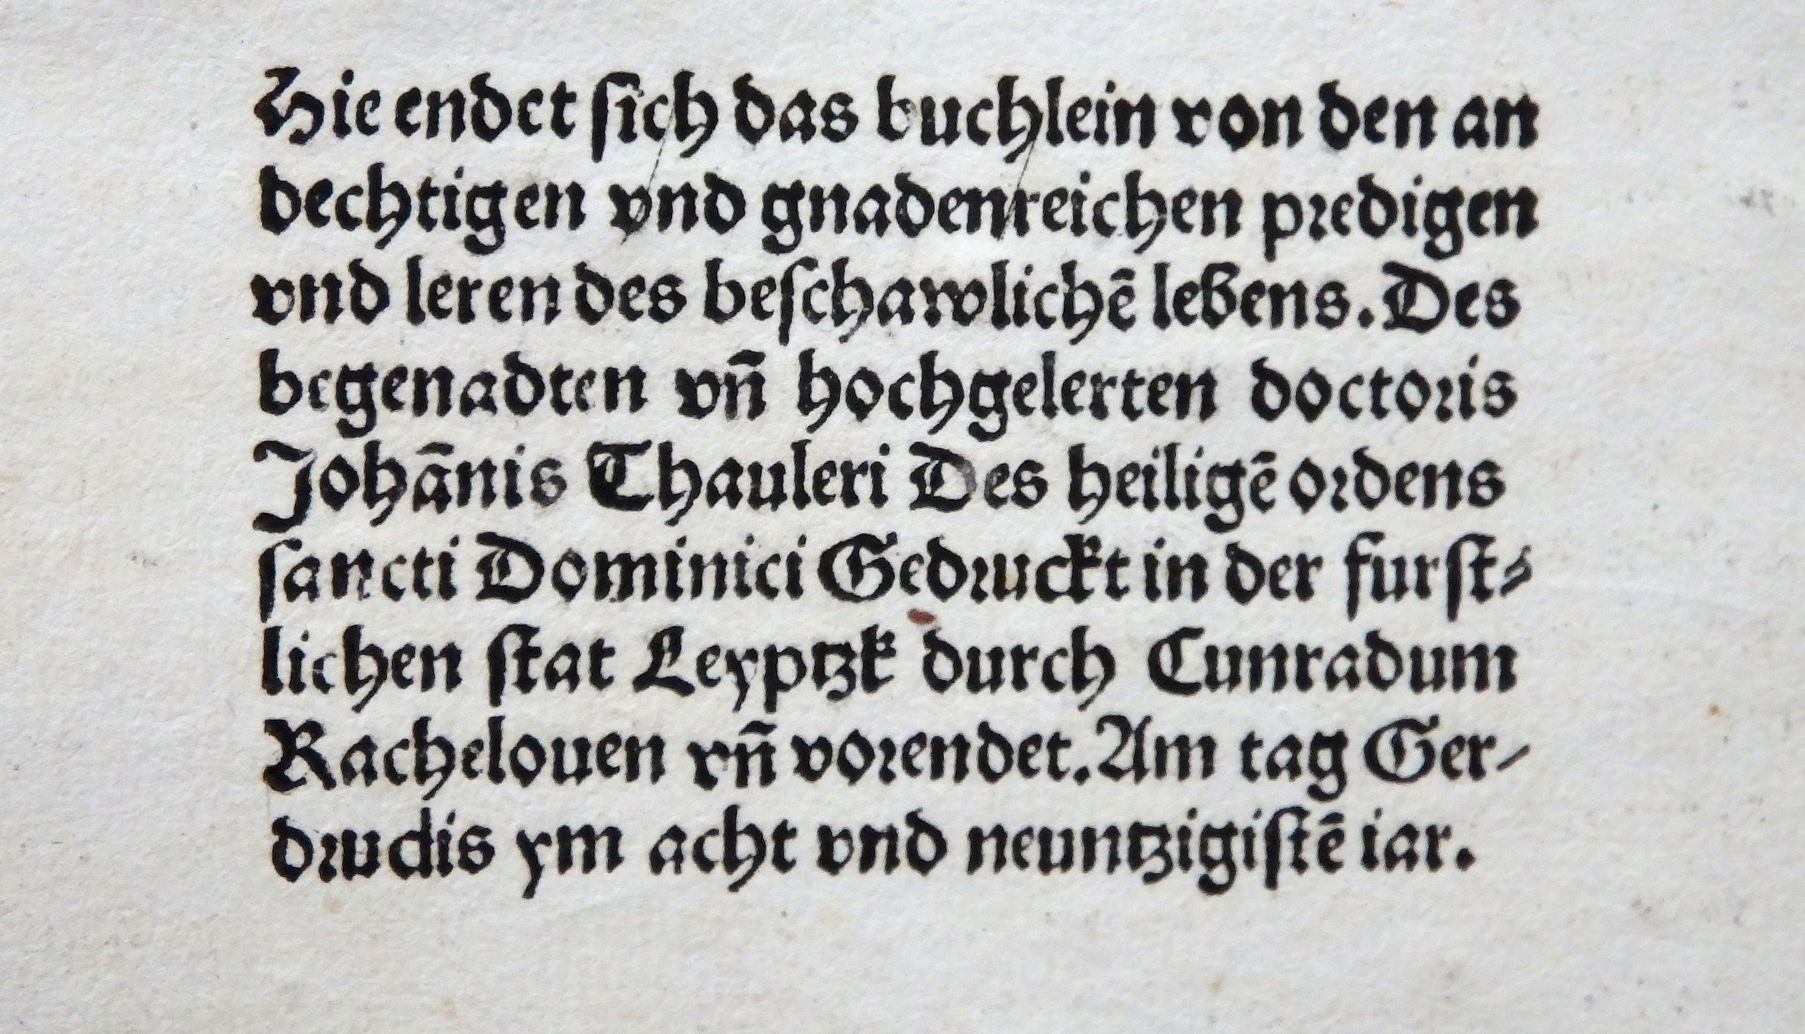 Hie endet sich das buchlein von den an
dechtigen vnd gnadenreichen predigen
vnd leren des beschawlichē lebens. Des
begenadten vn̄ hochgelerten doctoris
Johānis Thauleri Des heiligē ordens
sancti Dominici Gedruckt in der furst⸗
lichen stat Leyptzk durch Cunradum
Rachelouen vn̄ vorendet. Am tag Ger⸗
drudis ym acht vnd neuntzigistē iar.